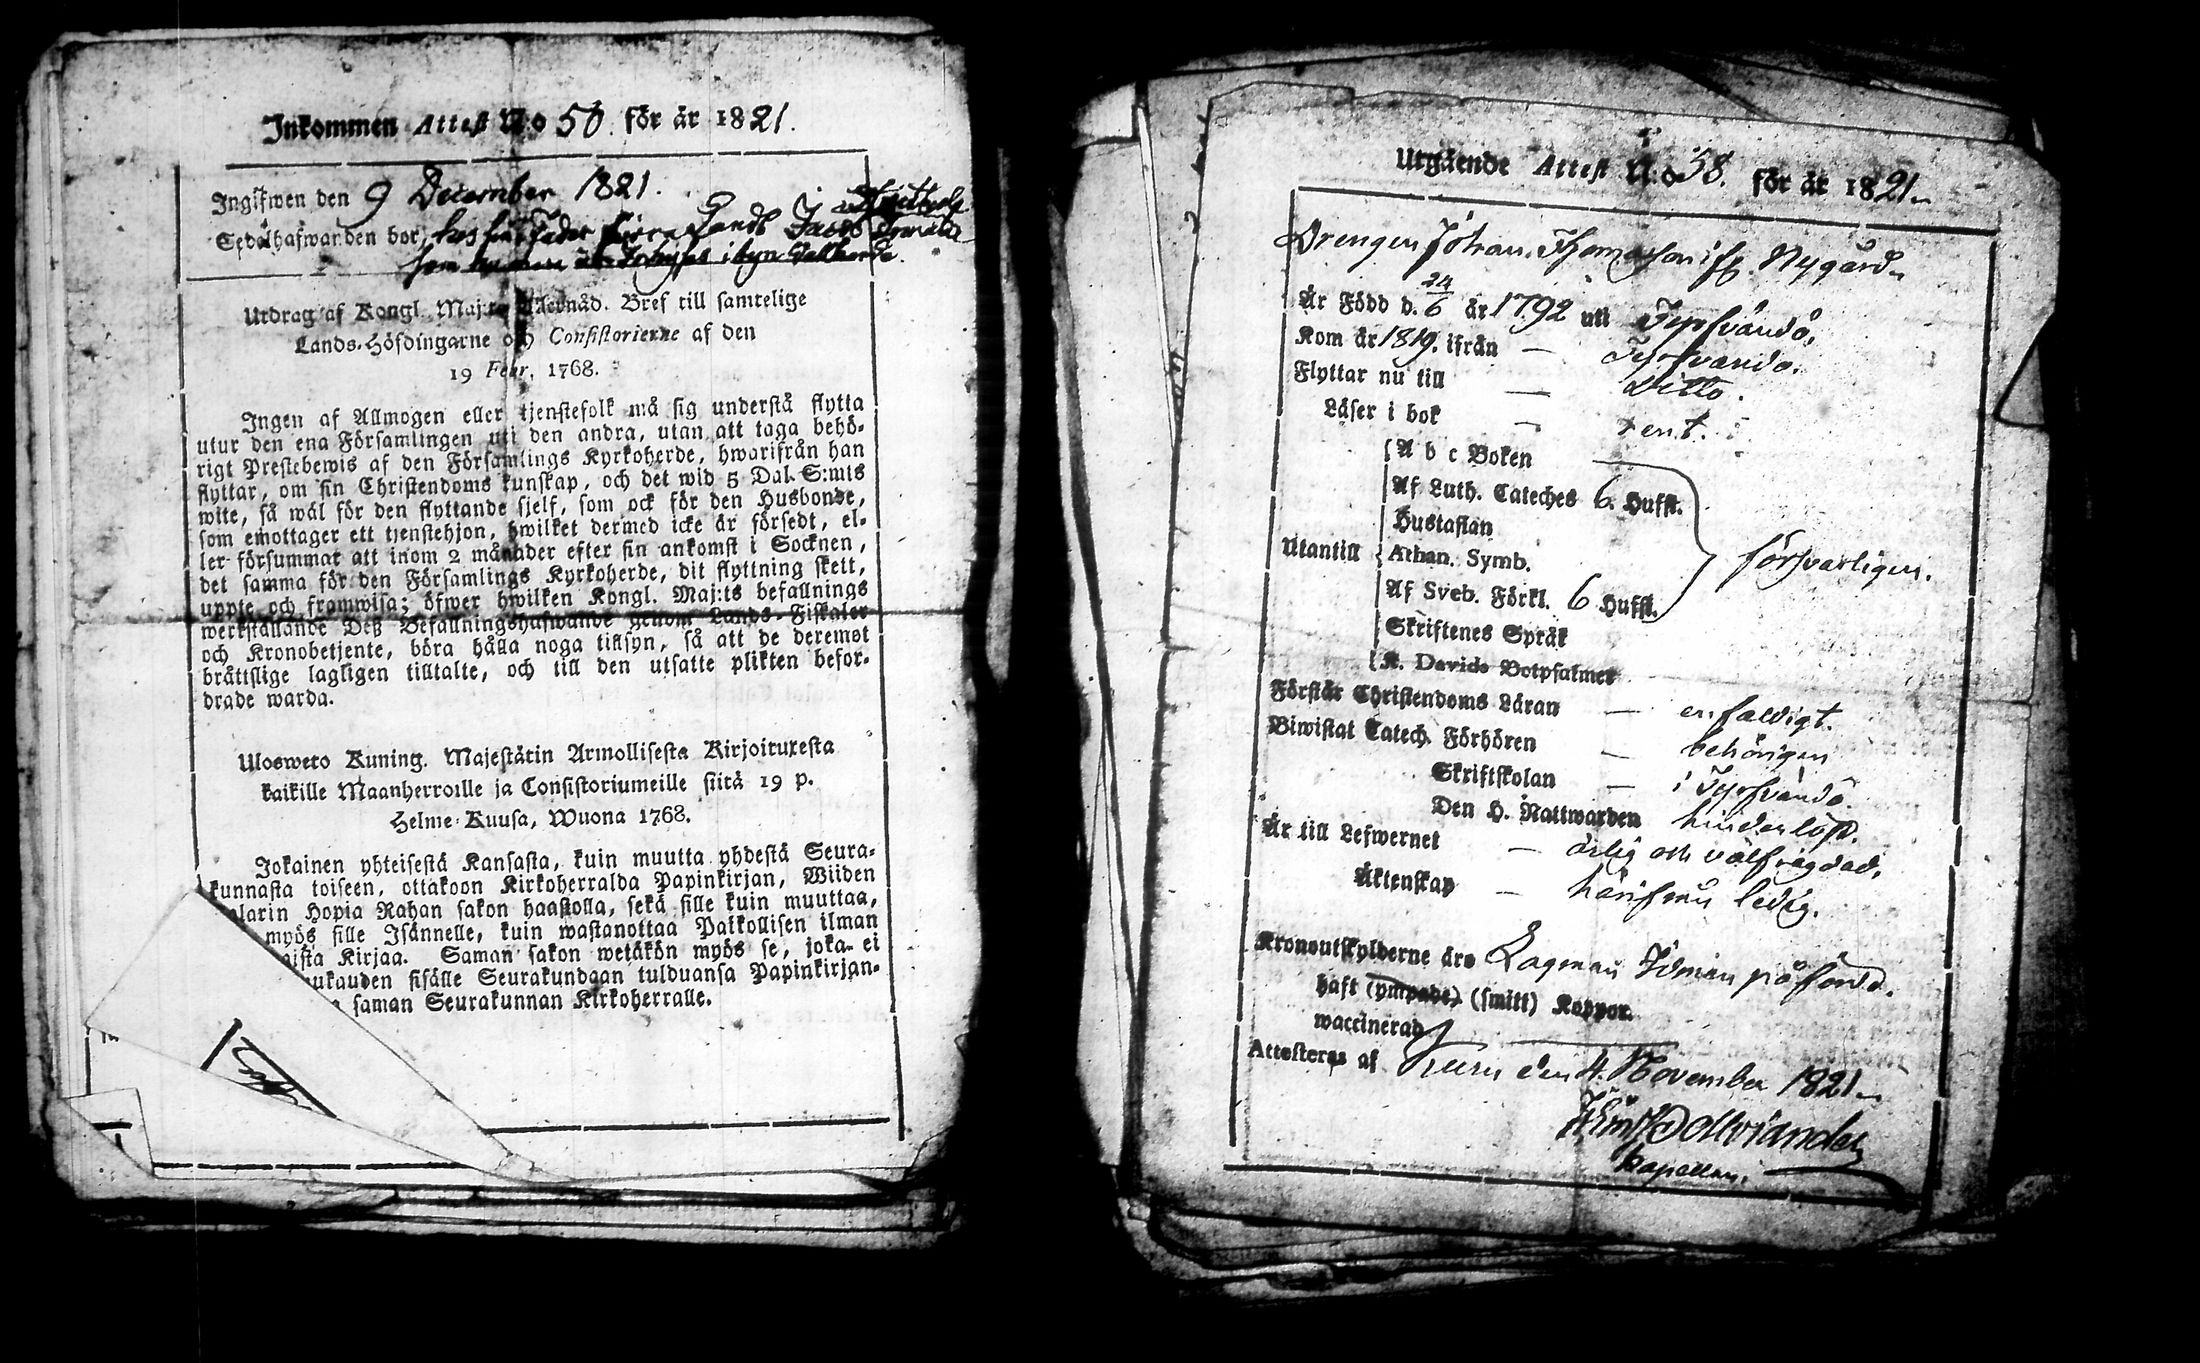 Inkommen Attest N:o 50. för år 1821.
Ingifwen den 9 December 1821.
Sedelhafwanden bor, hos
som i byn
Utdrag af Kongl. Maj:ts Allernåd. Bref till samtelige
Lands-Höfdingarne och Consistorierne af den
19 Febr. 1768.
Ingen af Allmogen eller tjenstefolk må sig understå flytta
utur den ena Församlingen uti den andra, utan att taga behö-
rigt Prestebewis af den Församlings Kyrkoherde, hwarifrån han
flyttar, om sin Christendoms kunskap, och det wid 5 Dal. S:mts
wite, så wäl för den flyttande sjelf, som ock för den Husbonde,
som emottager ett tjenstehjon, hwilket dermed icke är försedt, el-
ler försummar att inom 2 månader efter sin ankomst i Socknen,
det samma för den Församlings Kyrkoherde, dit flyttning skett,
uppte och framwisa; öfwer hwilken Kongl. Maj:ts befallnings
werkställande Deß Befallningshafwande genom Lands-Fiskaler
och Kronobetjente, böra hålla noga tillsyn, så att de deremot
bråttslige lagligen tilltalte, och till den utsatte plikten befor-
drade warda.
Ulosweto Kuning. Majestätin Armollisesta Kirjoituxesta
kaikille Maanherroille ja Consistoriumeille siitä 19 p.
Helme-Kuusa, Wuona 1768.
Jokainen yhteisestä Kansasta, kuin muutta yhdestä Seura-
kunnasta toiseen, ottakoon Kirkoherralda Papinkirjan, Wiiden
alarin Hopia Rahan sakon haastolla, sekä sille kuin muuttaa,
myös sille Isännelle, kuin wastanottaa Palkollisen ilman
aista Kirjaa. Saman sakon wetäkön myös se, joka ei
ukauden sisälle Seurakundaan tulduansa Papinkirjan-
saman Seurakunnan Kirkoherralle.
Utgående Attest N:o 58. för år 1821.
Drengen Johan Thomasson ifr. Nygård
Är Född d. 24/6 år 1792 uti Tyrfvändö.
Kom år 1819. ifrån — Tyrfvändö.
Flyttar nu till — Ditto.
Läser i bok — rent.
A b c Boken
Af Luth. Cateches 6. Hufst.
Hustaflan
Utantill Athan. Symb. försvarligen.
Af Sveb. Förkl. 6 Hufst.
Skriftenes Språk
K. Davids Botpsalmer
Förstår Christendoms Läran — enfaldigt.
Biwistat Catech. Förhören — behörigen
Skriftskolan — i Tyrfvändö.
Den H. Nattwarden hinderlöst.
Är till Lefwernet — ärlig och välfrägdad,
Äktenskap — härifrån ledig.
Kronoutskylderne äro Lagman Idman påförda.
Haft (ympade) (smitt) Koppor.
waccinerad
Attesteras af den 4. November 1821.
Kapellan.